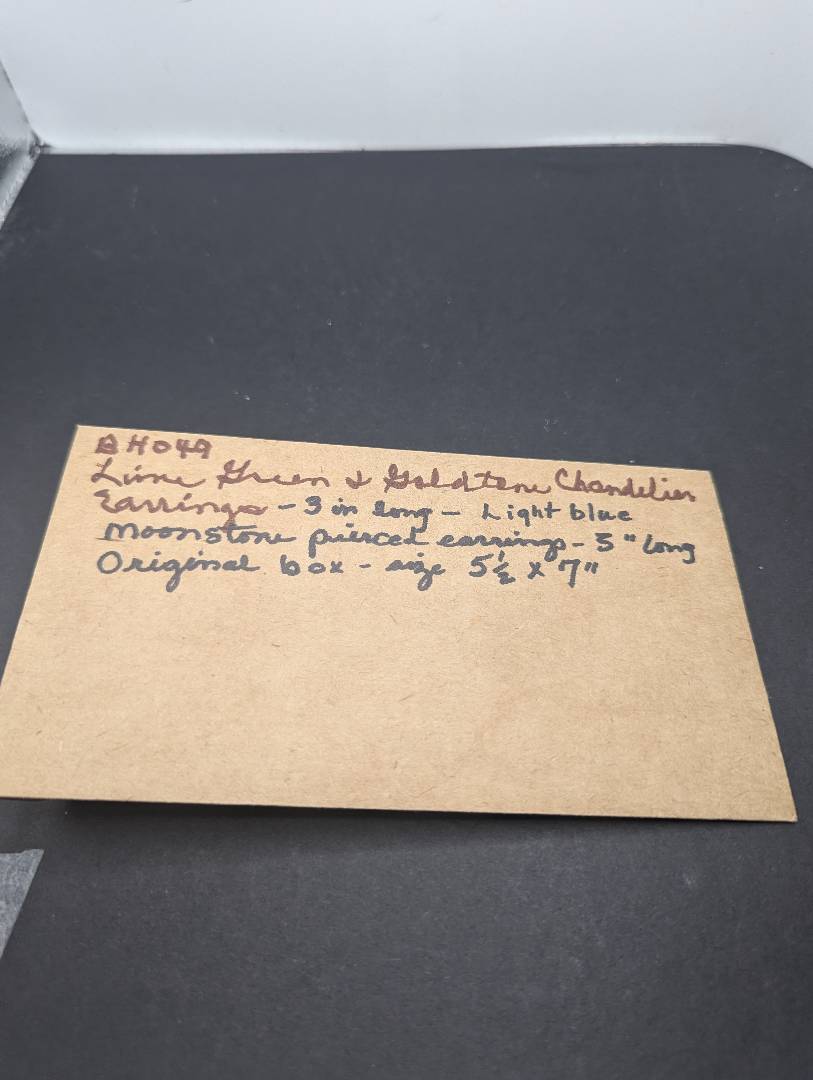 BH049
Lime Green & Goldtone Chandelier
Earrings - 3 in long - Light blue
moonstone pierced earrings - 3" long
Original box - size 5½ x 7"